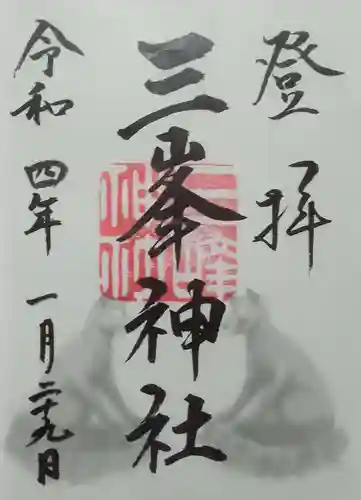 登拝
三峯神社
令和四年一月二十九日